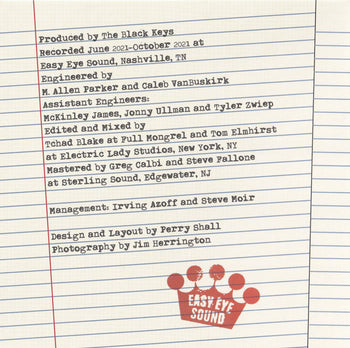 Produced by The Black Keys
Recorded June 2021-October 2021 at
Easy Eye Sound, Nashville, TN
Engineered by
M. Allen Parker and Caleb VanBuskirk
Assistant Engineers:
McKinley James, Jonny Ullman and Tyler Zwiep
Edited and Mixed by
Tchad Blake at Full Mongrel and Tom Elmhirst
at Electric Lady Studios, New York, NY
Mastered by Greg Calbi and Steve Fallone
at Sterling Sound, Edgewater, NJ
Management: Irving Azoff and Steve Moir
Design and Layout by Perry Shall
Photography by Jim Herrington
EASY EYE
SOUND